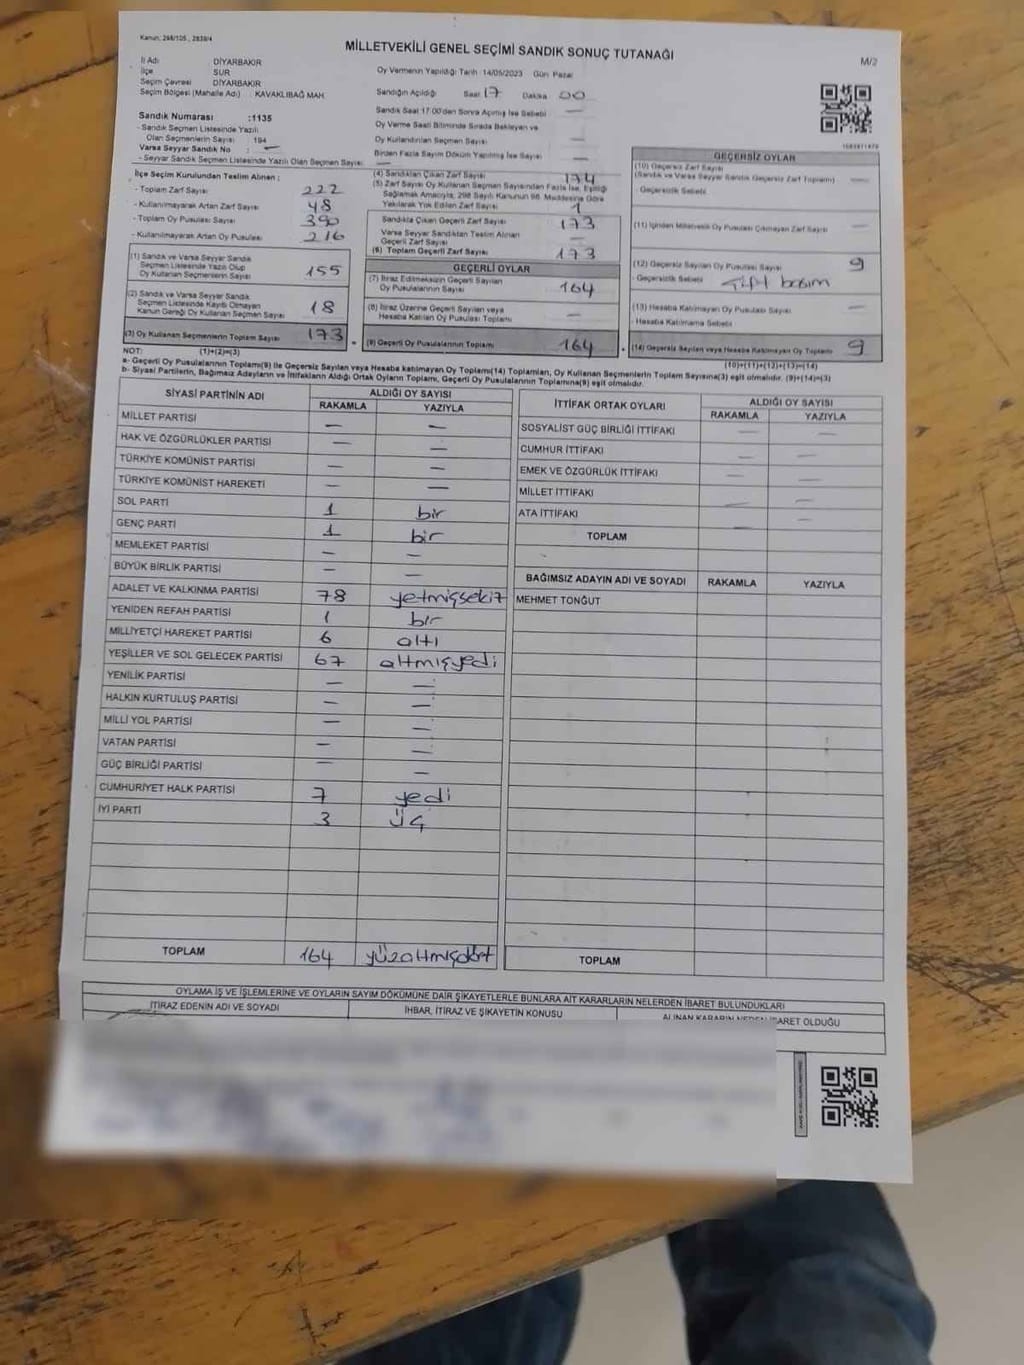 Kanun: 298/105 , 2839/4
MİLLETVEKİLİ GENEL SEÇİMİ SANDIK SONUÇ TUTANAĞI
M/2
İl Adı DİYARBAKIR
İlçe SUR
Seçim Çevresi DİYARBAKIR
Seçim Bölgesi (Mahalle Adı) KAVAKLIBAĞ MAH.
Oy Vermenin Yapıldığı Tarih 14/05/2023 Gün Pazar
Sandığın Açıldığı Saat 17 Dakika 00
Sandık Saat 17:00'den Sonra Açılmış İse Sebebi —
Oy Verme Saati Bitiminde Sırada Bekleyen ve
Oy Kullandırılan Seçmen Sayısı —
Birden Fazla Sayım Döküm Yapılmış İse Sayısı —
Sandık Numarası :1135
- Sandık Seçmen Listesinde Yazılı
Olan Seçmenlerin Sayısı 194
Varsa Seyyar Sandık No : —
- Seyyar Sandık Seçmen Listesinde Yazılı Olan Seçmen Sayısı —
İlçe Seçim Kurulundan Teslim Alınan :
- Toplam Zarf Sayısı : 222
- Kullanılmayarak Artan Zarf Sayısı : 48
- Toplam Oy Pusulası : 390
- Kullanılmayarak Artan Oy Pusulası : 216
(1) Sandık ve Varsa Seyyar Sandık
Seçmen Listesinde Yazılı Olup
Oy Kullanan Seçmenlerin Sayısı 155
(2) Sandık ve Varsa Seyyar Sandık
Seçmen Listesinde Kaydı Olmayan
Kanun Gereği Oy Kullanan Seçmen Sayısı 18
(3) Oy Kullanan Seçmenlerin Toplam Sayısı 173
(4) Sandıktan Çıkan Zarf Sayısı 174
(5) Zarf Sayısı Oy Kullanan Seçmen Sayısından Fazla İse, Eşitliği
Sağlamak Amacıyla, 298 Sayılı Kanunun 98. Maddesine Göre
Yakılarak Yok Edilen Zarf Sayısı 1
Sandıkta Çıkan Geçerli Zarf Sayısı 173
Varsa Seyyar Sandıktan Teslim Alınan
Geçerli Zarf Sayısı —
(6) Toplam Geçerli Zarf Sayısı 173
GEÇERLİ OYLAR
(7) İtiraz Edilmeksizin Geçerli Sayılan
Oy Pusulalarının Sayısı 164
(8) İtiraz Üzerine Geçerli Sayılan veya
Hesaba Katılan Oy Pusulası Toplamı —
(9) Geçerli Oy Pusulalarının Toplamı 164
GEÇERSİZ OYLAR
(10) Geçersiz Zarf Sayısı
(Sandık ve Varsa Seyyar Sandık Geçersiz Zarf Toplamı) —
- Geçersizlik Sebebi
(11) İçinden Milletvekili Oy Pusulası Çıkmayan Zarf Sayısı —
(12) Geçersiz Sayılan Oy Pusulası Sayısı 9
- Geçersizlik Sebebi Çift basım
(13) Hesaba Katılmayan Oy Pusulası Sayısı —
- Hesaba Katılmama Sebebi
(14) Geçersiz Sayılan veya Hesaba Katılmayan Oy Toplamı 9
NOT: (1)+(2)=(3)
(10)+(11)+(12)+(13)=(14)
a- Geçerli Oy Pusulalarının Toplamı(9) ile Geçersiz Sayılan veya Hesaba katılmayan Oy Toplamı(14) Toplamları, Oy Kullanan Seçmenlerin Toplam Sayısına(3) eşit olmalıdır. (9)+(14)=(3)
b- Siyasi Partilerin, Bağımsız Adayların ve İttifakların Aldığı Ortak Oyların Toplamı, Geçerli Oy Pusulalarının Toplamına(9) eşit olmalıdır.
SİYASİ PARTİNİN ADI ALDIĞI OY SAYISI
RAKAMLA YAZIYLA
MİLLET PARTİSİ — —
HAK VE ÖZGÜRLÜKLER PARTİSİ — —
TÜRKİYE KOMÜNİST PARTİSİ — —
TÜRKİYE KOMÜNİST HAREKETİ — —
SOL PARTİ 1 bir
GENÇ PARTİ 1 bir
MEMLEKET PARTİSİ — —
BÜYÜK BİRLİK PARTİSİ — —
ADALET VE KALKINMA PARTİSİ 78 yetmişsekiz
YENİDEN REFAH PARTİSİ 1 bir
MİLLİYETÇİ HAREKET PARTİSİ 6 altı
YEŞİLLER VE SOL GELECEK PARTİSİ 67 altmışyedi
YENİLİK PARTİSİ — —
HALKIN KURTULUŞ PARTİSİ — —
MİLLİ YOL PARTİSİ — —
VATAN PARTİSİ — —
GÜÇ BİRLİĞİ PARTİSİ — —
CUMHURİYET HALK PARTİSİ 7 yedi
İYİ PARTİ 3 üç
TOPLAM 164 yüzaltmışdört
İTTİFAK ORTAK OYLARI ALDIĞI OY SAYISI
RAKAMLA YAZIYLA
SOSYALİST GÜÇ BİRLİĞİ İTTİFAKI — —
CUMHUR İTTİFAKI — —
EMEK VE ÖZGÜRLÜK İTTİFAKI — —
MİLLET İTTİFAKI — —
ATA İTTİFAKI — —
TOPLAM
BAĞIMSIZ ADAYIN ADI VE SOYADI RAKAMLA YAZIYLA
MEHMET TONĞUT
TOPLAM
OYLAMA İŞ VE İŞLEMLERİNE VE OYLARIN SAYIM DÖKÜMÜNE DAİR ŞİKAYETLERLE BUNLARA AİT KARARLARIN NELERDEN İBARET BULUNDUKLARI
İTİRAZ EDENİN ADI VE SOYADI İHBAR, İTİRAZ VE ŞİKAYETİN KONUSU ALINAN KARARIN NEDEN İBARET OLDUĞU